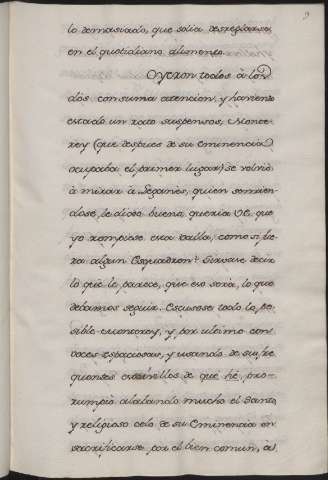 9
lo demasiado, que solia desreglarse
en el quotidiano alimento.
Oyeron todos à los dos
con suma atencion, y haviendo
estado un rato suspensos, Monte-
rey (que despues de su Eminencia
ocupaba el primer lugar) se volvió
à mirar à Leganès, quien sonrien-
dose, le dixo: buena queria VE. que
yo rompiese esta valla, como si fue-
ra algun Esquadron. Sirvase decir
lo que le parece, que eso serà, lo que
debamos seguir. Escusose todo lo po-
sible Monterey, y por ultimo con
voces espaciosas, y usando de sus fre-
quentes de que hè, pro-
rumpiò alabando mucho el Santo,
y religioso celo de su Eminencia en
sacrificarse por el bien comun, al